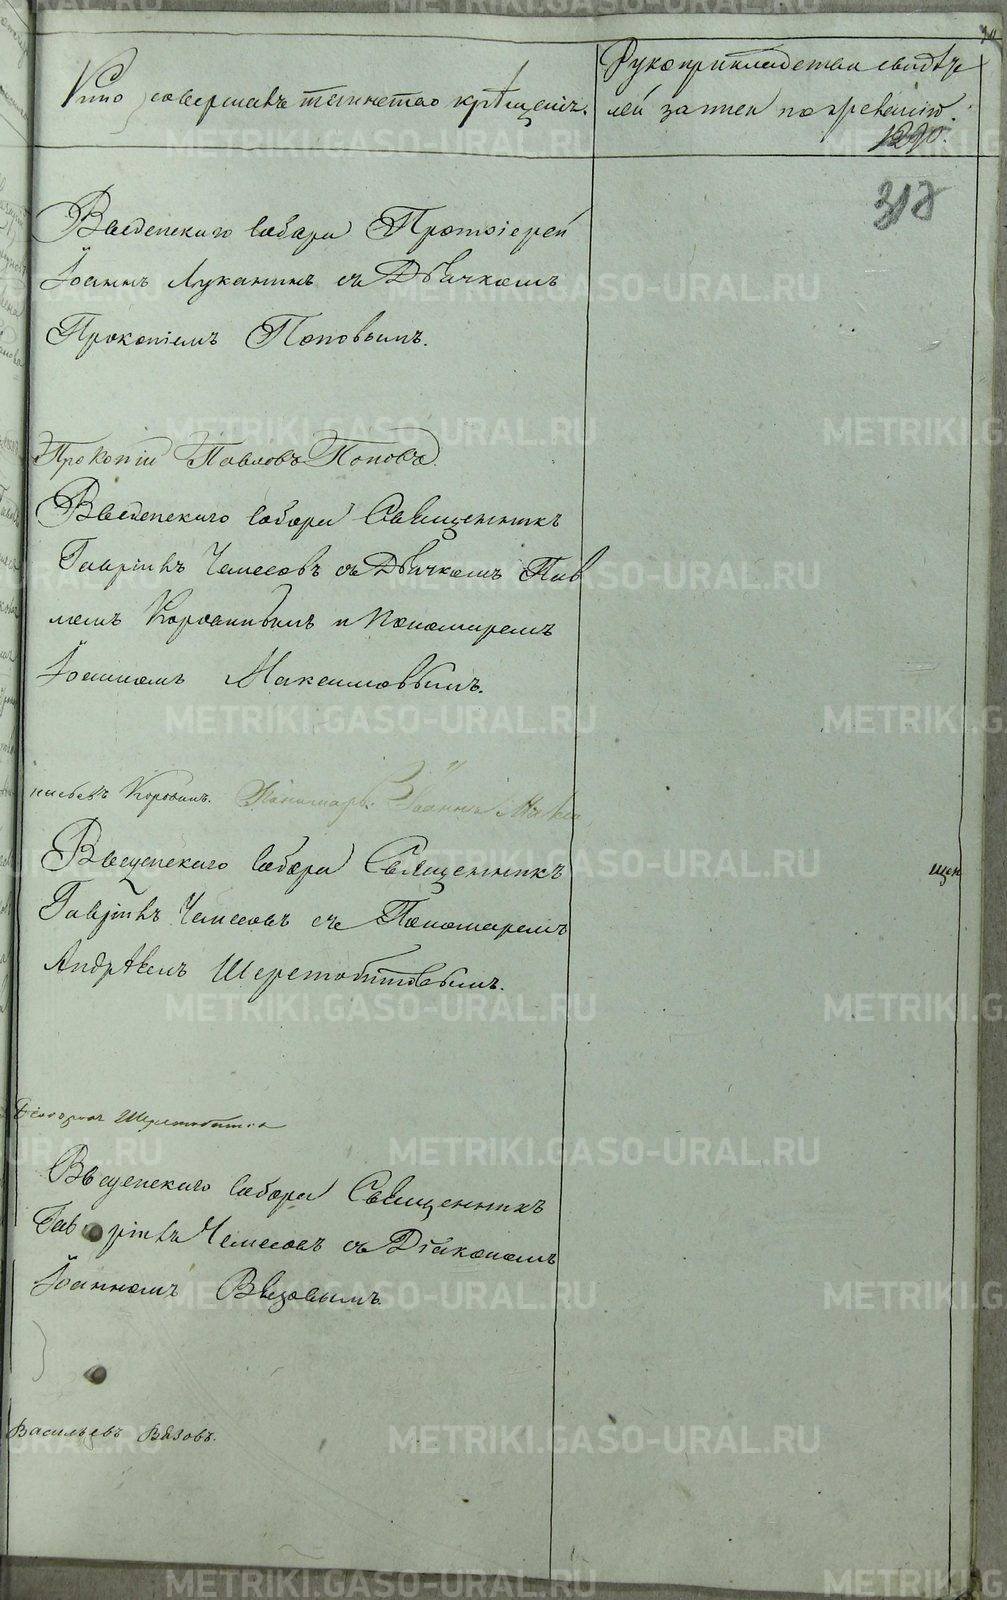 Кто совершалъ таинство крѣщенія.
Рукоприкладства свидѣте
лей записи по
1290.
318
Введенскаго Собора Протоіерей
Іоаннъ Луканинъ съ Дьячкомъ
Прокопіемъ Поповымъ.
Прокопій Павловъ Поповъ.
Введенскаго Собора Священникъ
Гавріилъ Чемесовъ съ Дьячкомъ Пав
ломъ Коровинымъ и Пономаремъ
Іоанномъ Максимовымъ.
Коровинъ. Пономарь Іоаннъ
Введенскаго Собора Священникъ
Гавріилъ Чемесовъ съ Пономаремъ
Андреемъ Шеремобитовымъ.
Введенскаго Собора Священникъ
Гавріилъ Чемесовъ съ Діакономъ
Іоанномъ Вязовымъ.
Васильевъ Вязовъ.
METRIKI.GASO-URAL.RU